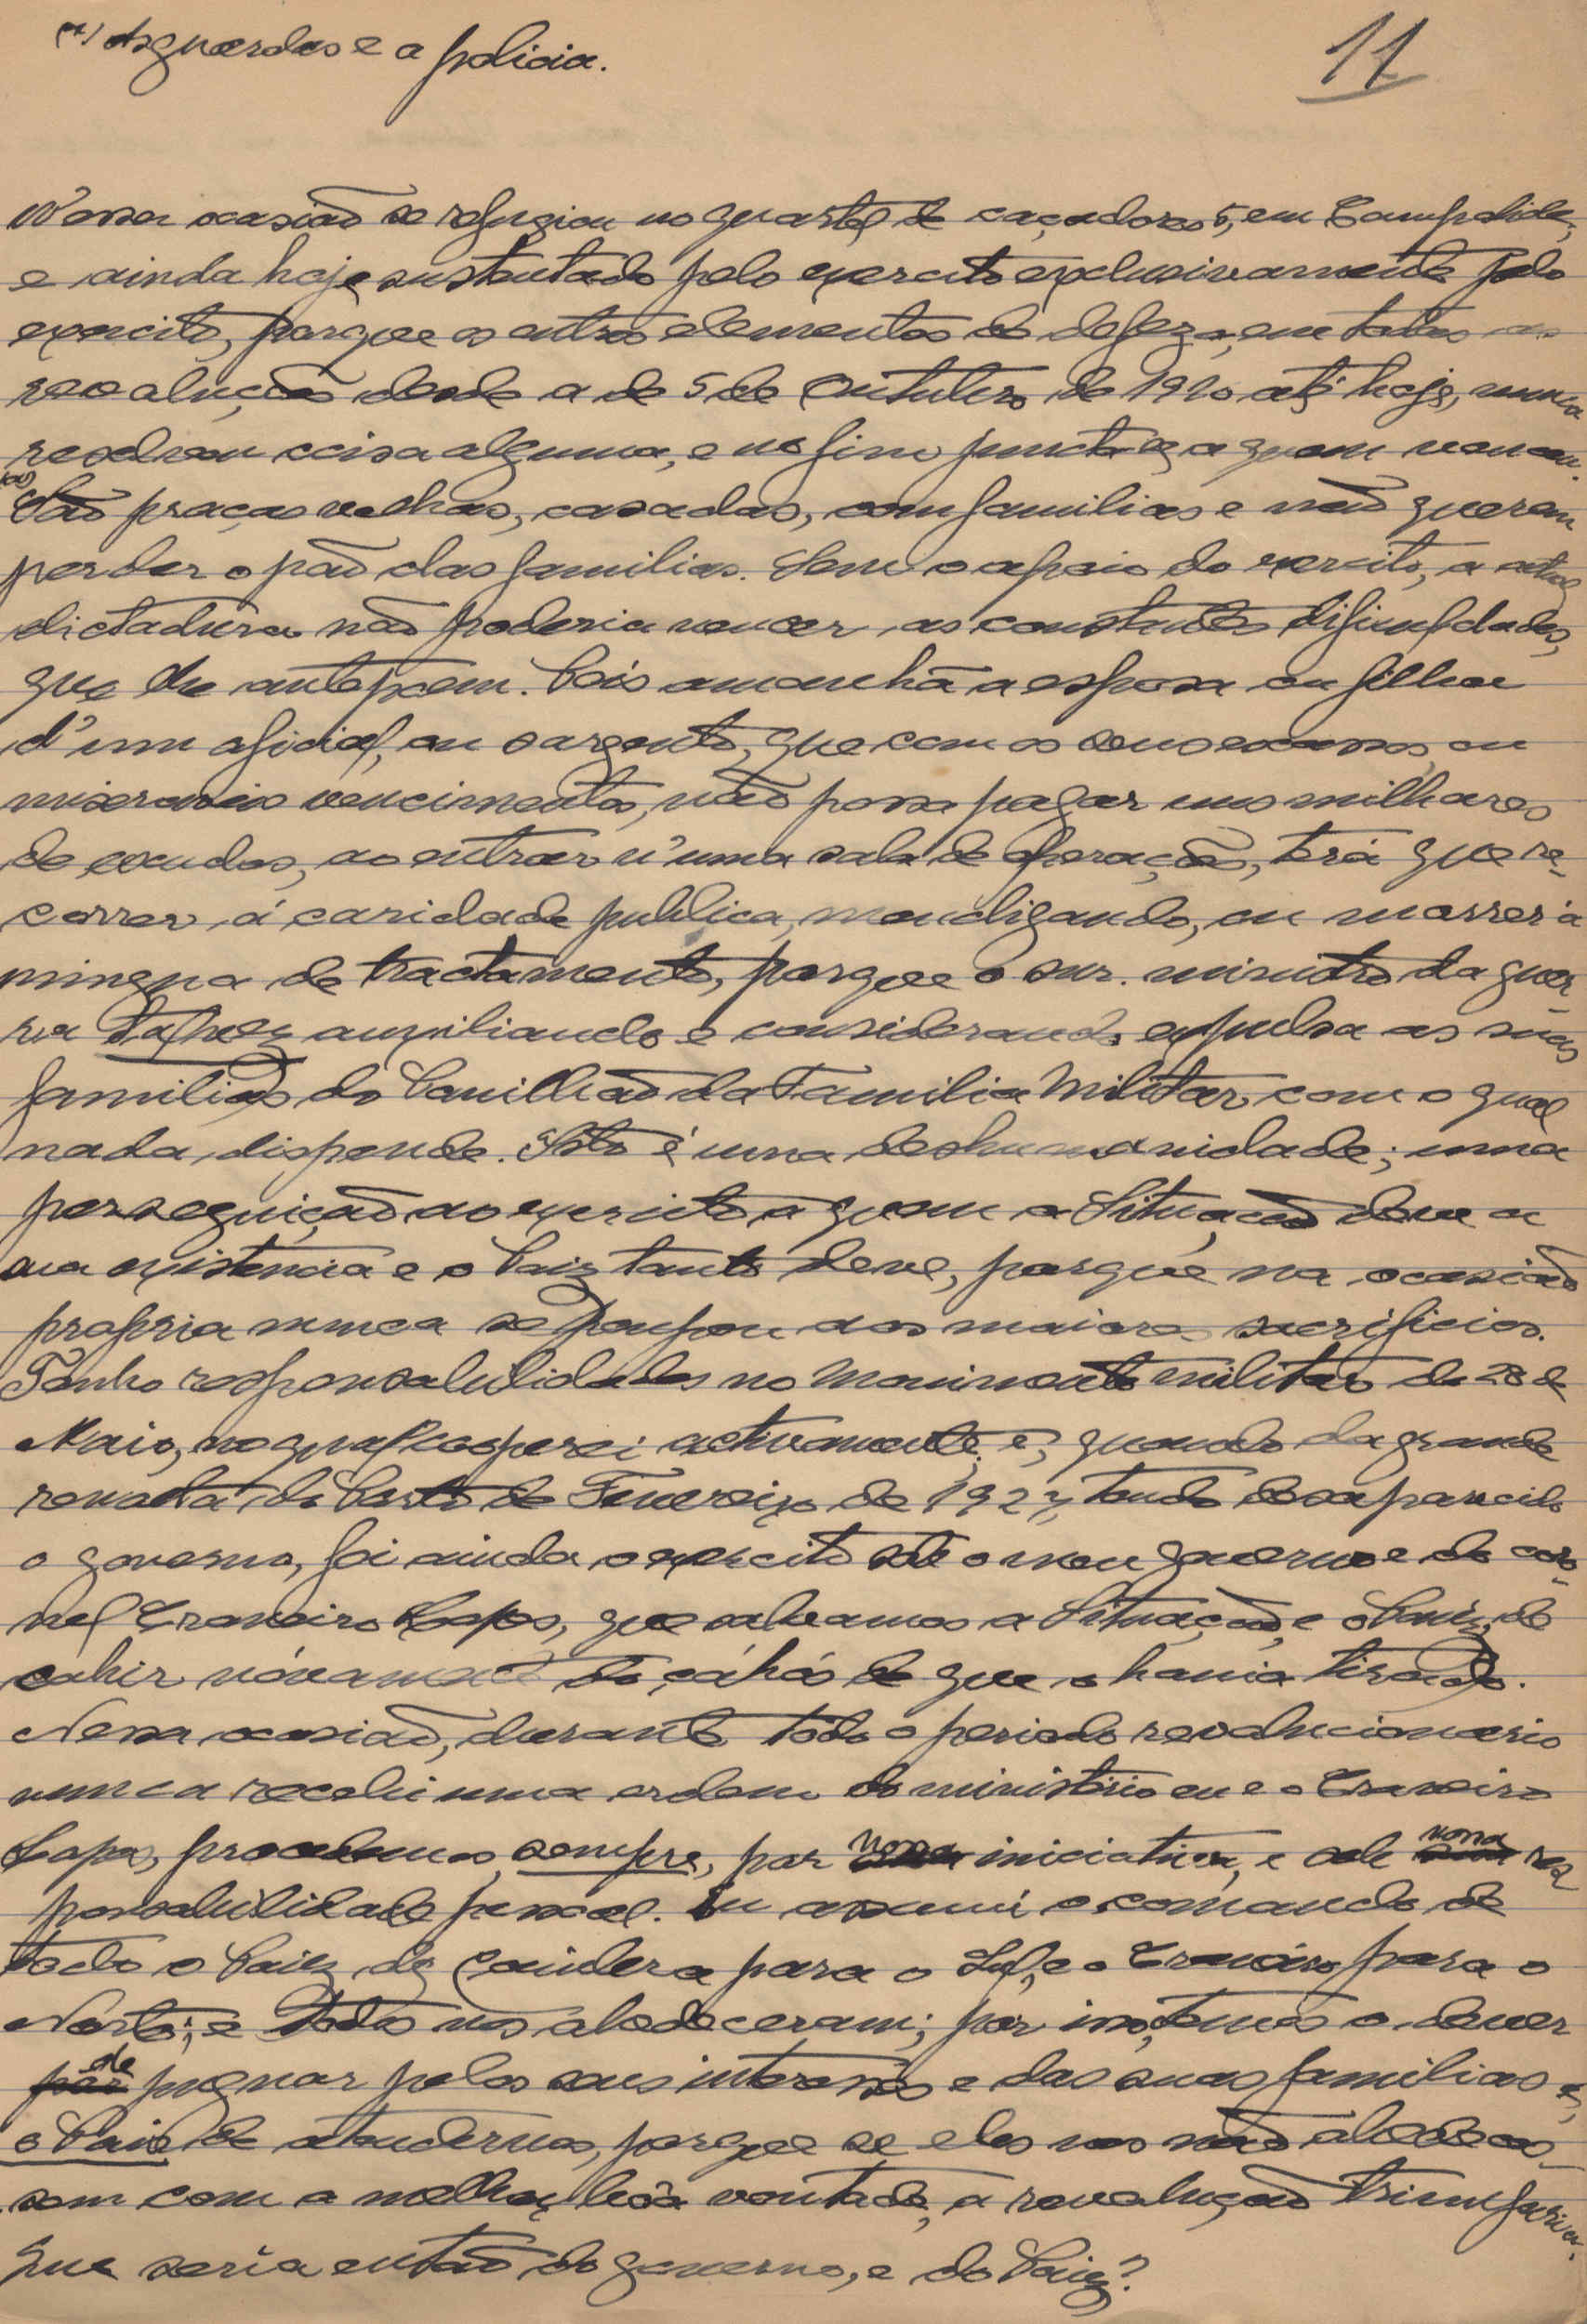 (a) As guardas e a policia.
11
N'essa ocasião se refugiou no quartel de caçadores 5, em Campolide,
e ainda hoje sustentado pelo exercito exclusivamente pelo
exercito, porque os outros elementos de defeza, em todas as
revoluções desde a de 5 de Outubro de 1910 até hoje, nunca
resolveu coisa alguma, e no fim juncta-se a quem venceu.
(a) São praças velhas, casadas, com familias e não querem
perder o pão das familias. Sem o apoio do exercito, a actual
dictadura não poderia vencer as constantes dificuldades,
que lhe antepoem. Pois amanhã a esposa ou filha
d'um oficial, ou sargento, que com os seus escassos, ou
miseraveis vencimentos, não possa pagar uns milhares
de escudos, ao entrar n'uma sala de operações, terá que re-
correr á caridade publica, mendigando, ou morrer á
mingua de tractamento, porque o snr. ministro da guer-
ra talvez auxiliando e considerando, expulsa as suas
familias do Pavilhão da Familia Militar, com o qual
nada dispende. Isto é uma deshumanidade; uma
perseguição ao exercito a quem a Situação deve a
sua existencia e o Paiz tanto deve, porque na ocasião
propria nunca se poupou aos maiores sacrificios.
Tenho responsabilidades no Movimento militar de 28 de
Maio, no qual cooperei activamente, e, quando da grande
revolta do Porto de Fevereiro de 1927, tendo desaparecido
o governo, foi ainda o exercito sob o meu governo e do coro-
nel Craveiro Lopes, que salvamos a Situação, e o Paiz, de
cahir nóvamente do cáhos de que o havia tirado.
Nessa ocasião, durante todo o periodo revolucionario
nunca recebi uma ordem do ministério eu e o Craveiro
Lopes, procedemos sempre, por nossa iniciativa, e sob nossa res
ponsabilidade pessoal. Eu assumi o comando de
todo o Paiz, de Coimbra para o Sul, e o Craveiro para o
Norte; e todos nos obedeceram; por isso, temos o dever
de pugnar pelos seus interesses e das suas familias e,
o Paiz de atendernos, porque se eles nos não obedeces-
sem com a melhor bôa vontade, a revolução triunfaria.
Que seria então do governo, e do Paiz?